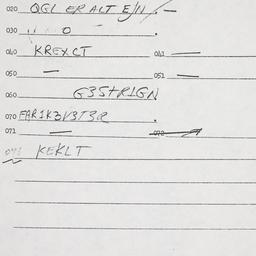 020 OGL ER ALT E/N . —
030 11 O .
040 KREXCT 041 —
050 — 051 —
060 G3StR1GN
070 FAR1K3V3T3R .
071 — 072
071 KEKLT